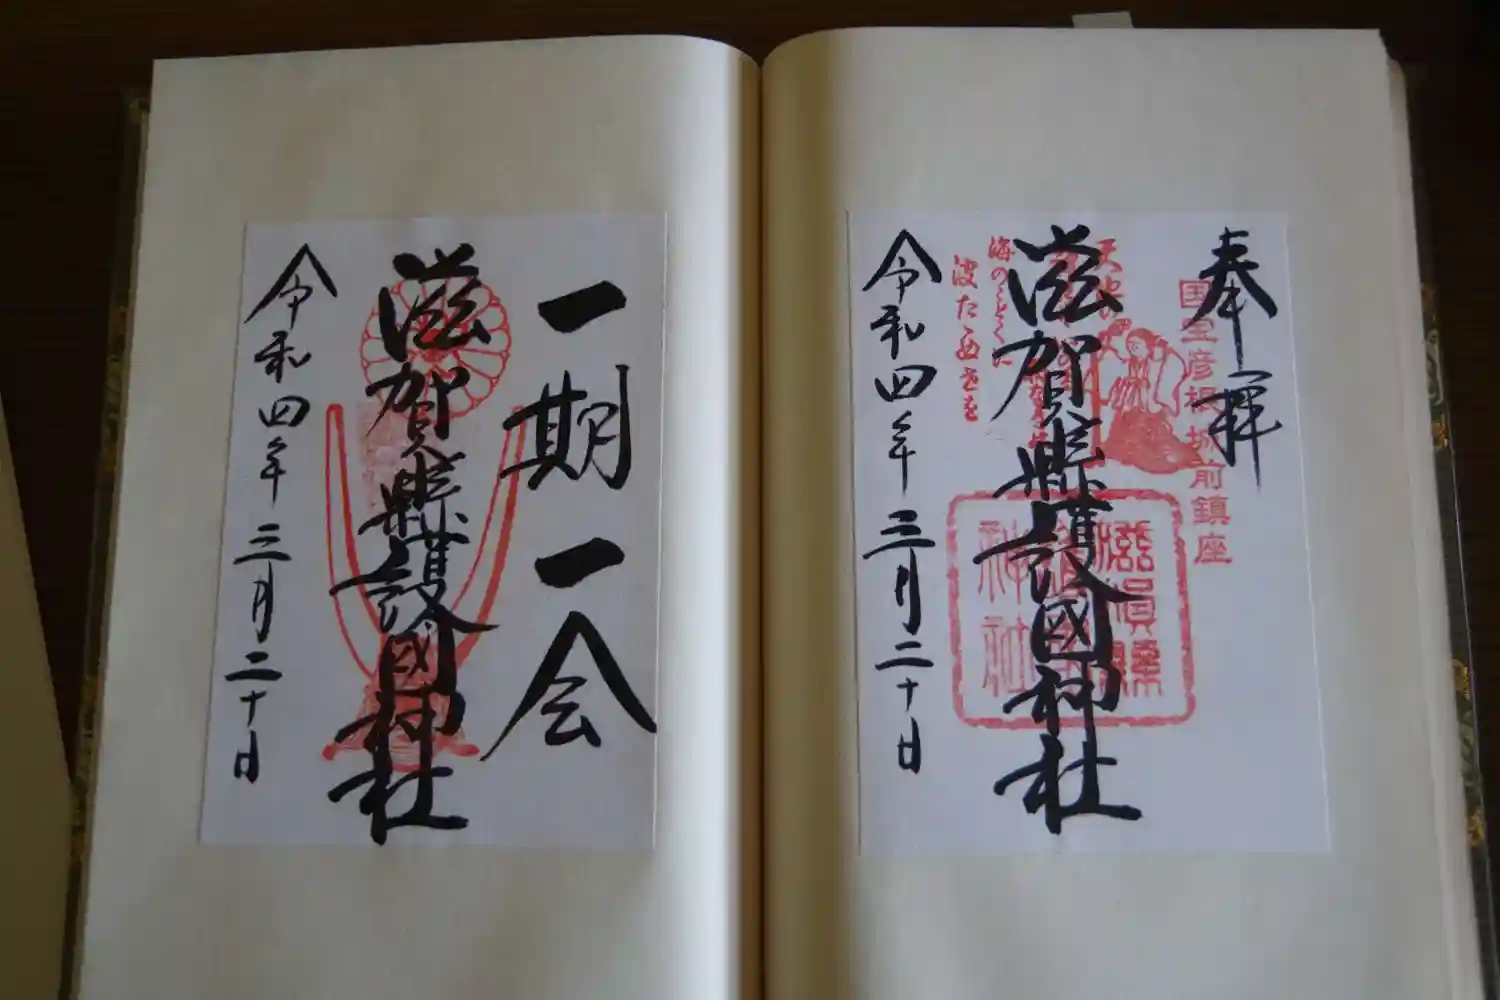 奉拝
国宝彦根城前鎮座
滋賀縣護國神社
海のとくに
波たゝぬ世を
令和四年三月二十日
一期一会
滋賀縣護國神社
令和四年三月二十日